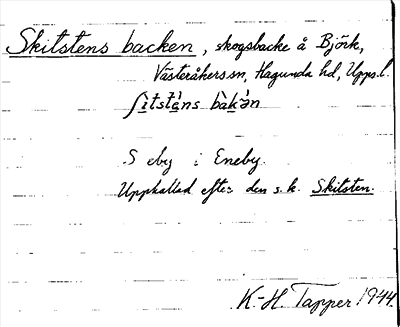 Skitstens backen, skogsbacke å Björk,
Västeråkers sn, Hagunda hd, Upps. l.
ʃìtstèns bàkən
S eby i Eneby.
Uppkallad efter den s.k. Skitsten.
K.-H. Tapper 1944.